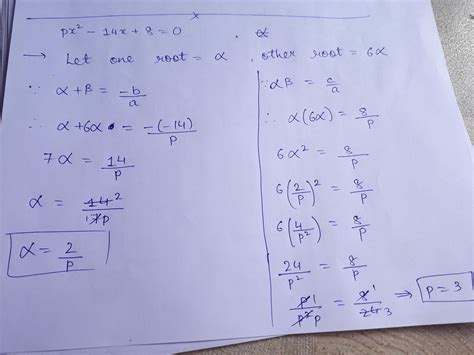 px² - 14x + 8 = 0
→ Let one root = α, other root = 6α
∵ α + β = -b/a
∴ α + 6α = -(-14)/p
7α = 14/p
α = 14 2/1 7p
α = 2/p
∵ αβ = c/a
∴ α(6α) = 8/p
6α² = 8/p
6(2/p)² = 8/p
6(4/p²) = 8/p
24/p² = 8/p
p 1/p² p = 8 1/24 3 ⇒ p = 3